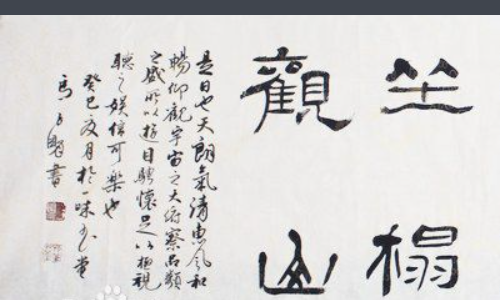 坐榻
觀山
是日也天朗氣清惠風和
暢仰觀宇宙之大俯察品類
之盛所以遊目騁懷足以極視
聽之娛信可樂也
癸巳夏月於一味堂
馬子書